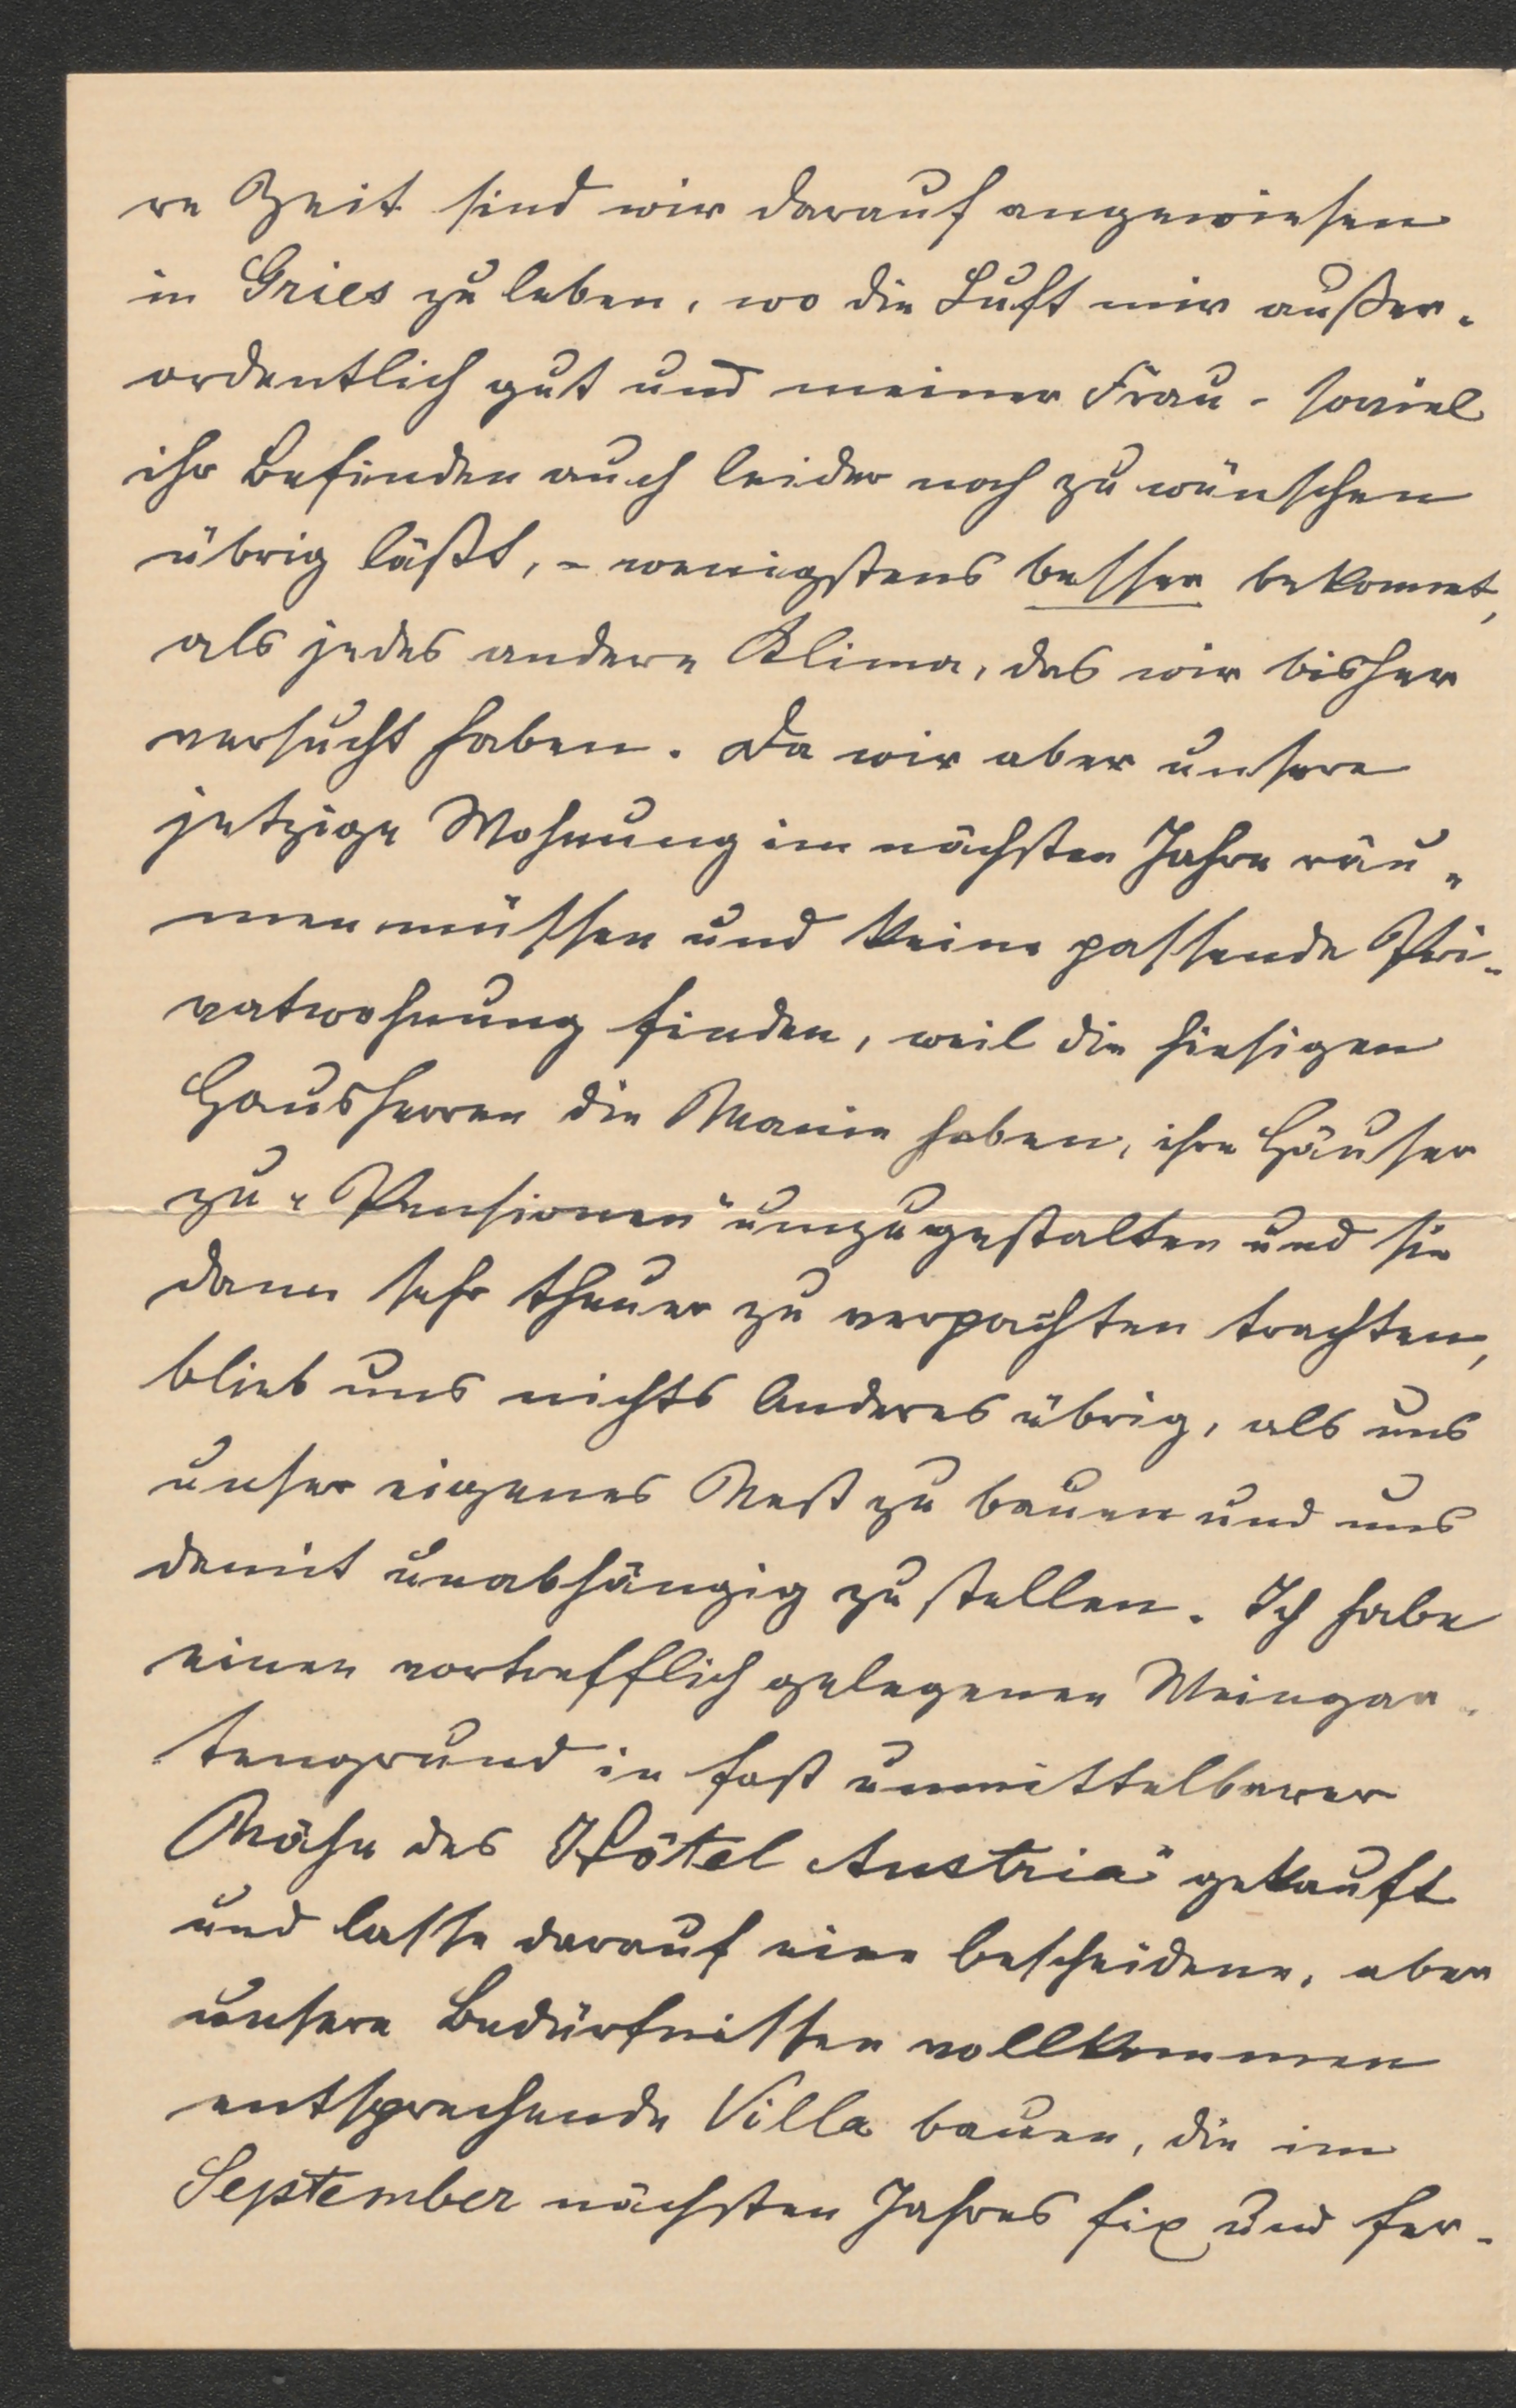 re Zeit sind wir darauf angewiesen
in Gries zu leben, wo die Luft mir außer-
ordentlich gut und meiner Frau - soviel
ihr Befinden auch leider noch zu wünschen
übrig läßt, - wenigstens besser bekommt,
als jedes andere Klima, das wir bisher
versucht haben. Da wir aber unsere
jetzige Wohnung im nächsten Jahre räu-
men müssen und keine passende Pri-
vatwohnung finden, weil die hiesigen
Hausherren die Manie haben, ihre Häuser
zu "Pensionen" umzugestalten und sie
dann sehr theuer zu verpachten trachten,
blieb uns nichts Anderes übrig, als uns
unser eigenes Nest zu bauen und uns
damit unabhängig zu stellen. Ich habe
einen vortrefflich gelegenen Weingar-
tengrund in fast unmittelbarer
Nähe des Hôtel Austria" gekauft
und lasse darauf eine bescheidene, aber
unsere Bedürfnissen vollkommen
entsprechende Villa bauen, die im
September nächsten Jahres fix und fer-